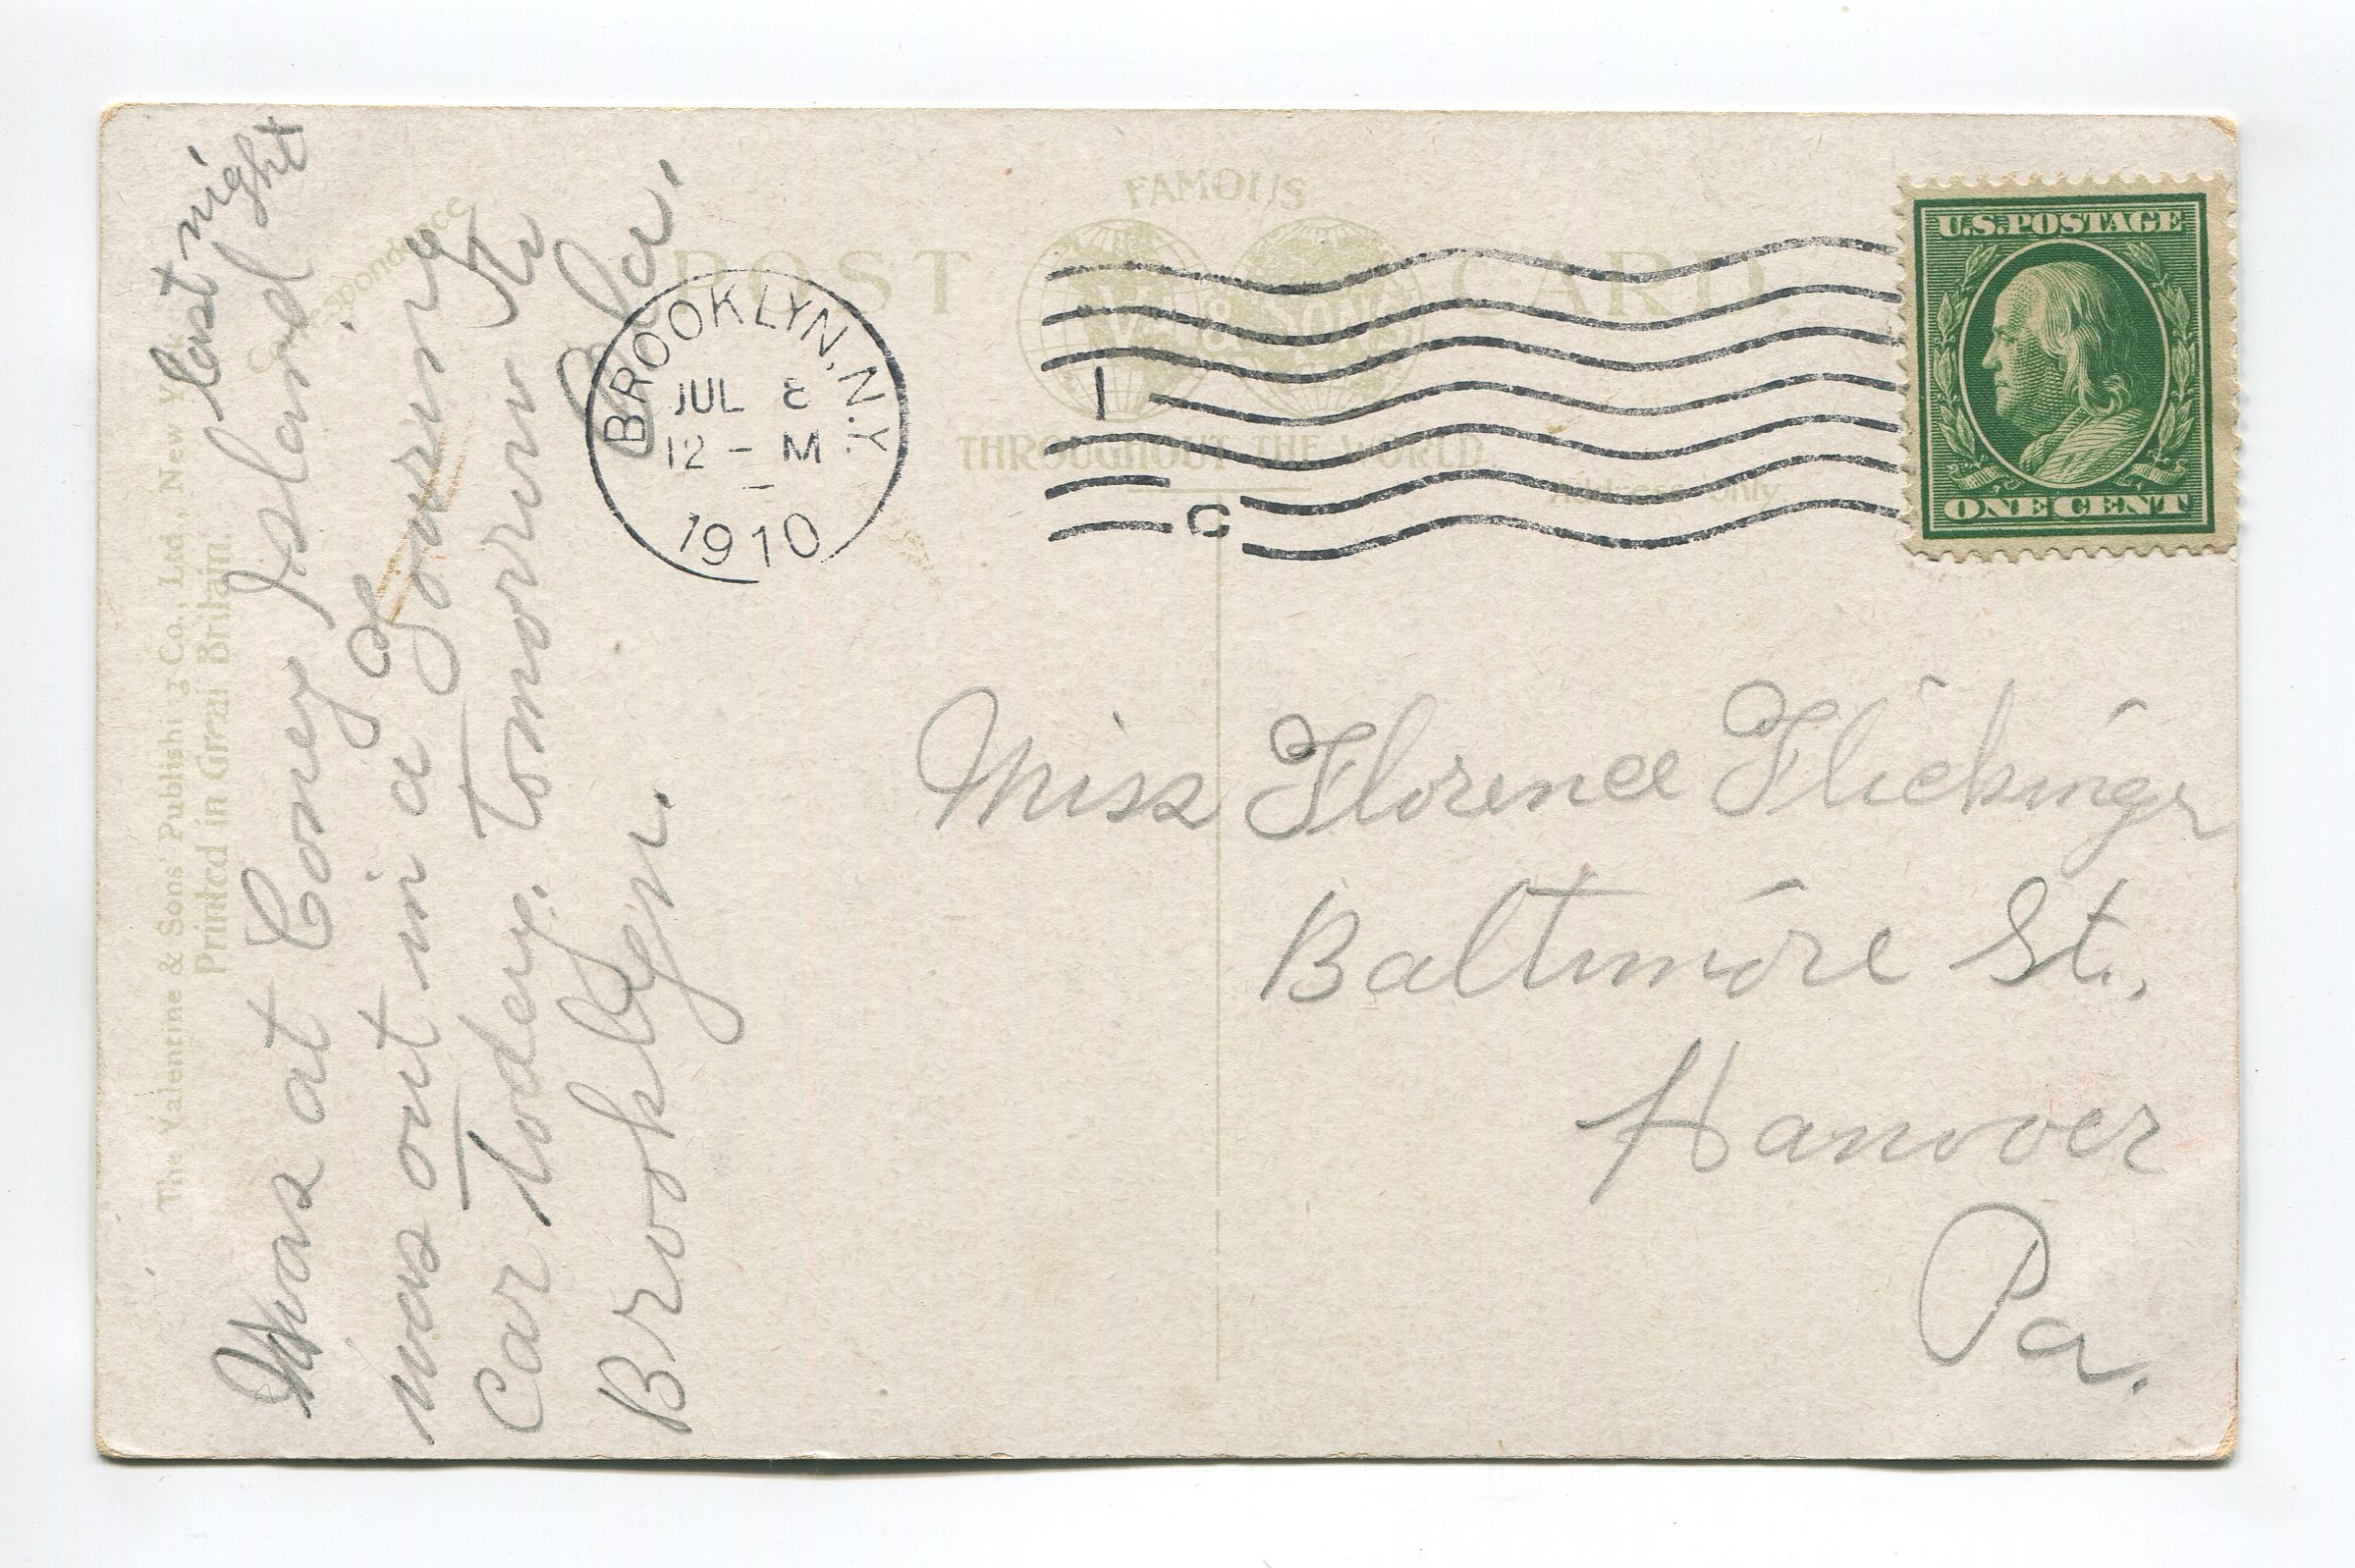 The Valentine & Sons' Publishing Co., Ltd., New York
Printed in Great Britain.
Correspondence
Was at Coney Island last night
was out in a Touring
Car today. Tomorrow to
Brooklyn.
FAMOUS
POST CARD.
V & SONS
THROUGHOUT THE WORLD
Address only.
BROOKLYN, N.Y.
JUL 8
12 - M
1910
1 C
U.S. POSTAGE
ONE CENT
Miss Florence Flickinger
Baltimore St.,
Hanover
Pa.